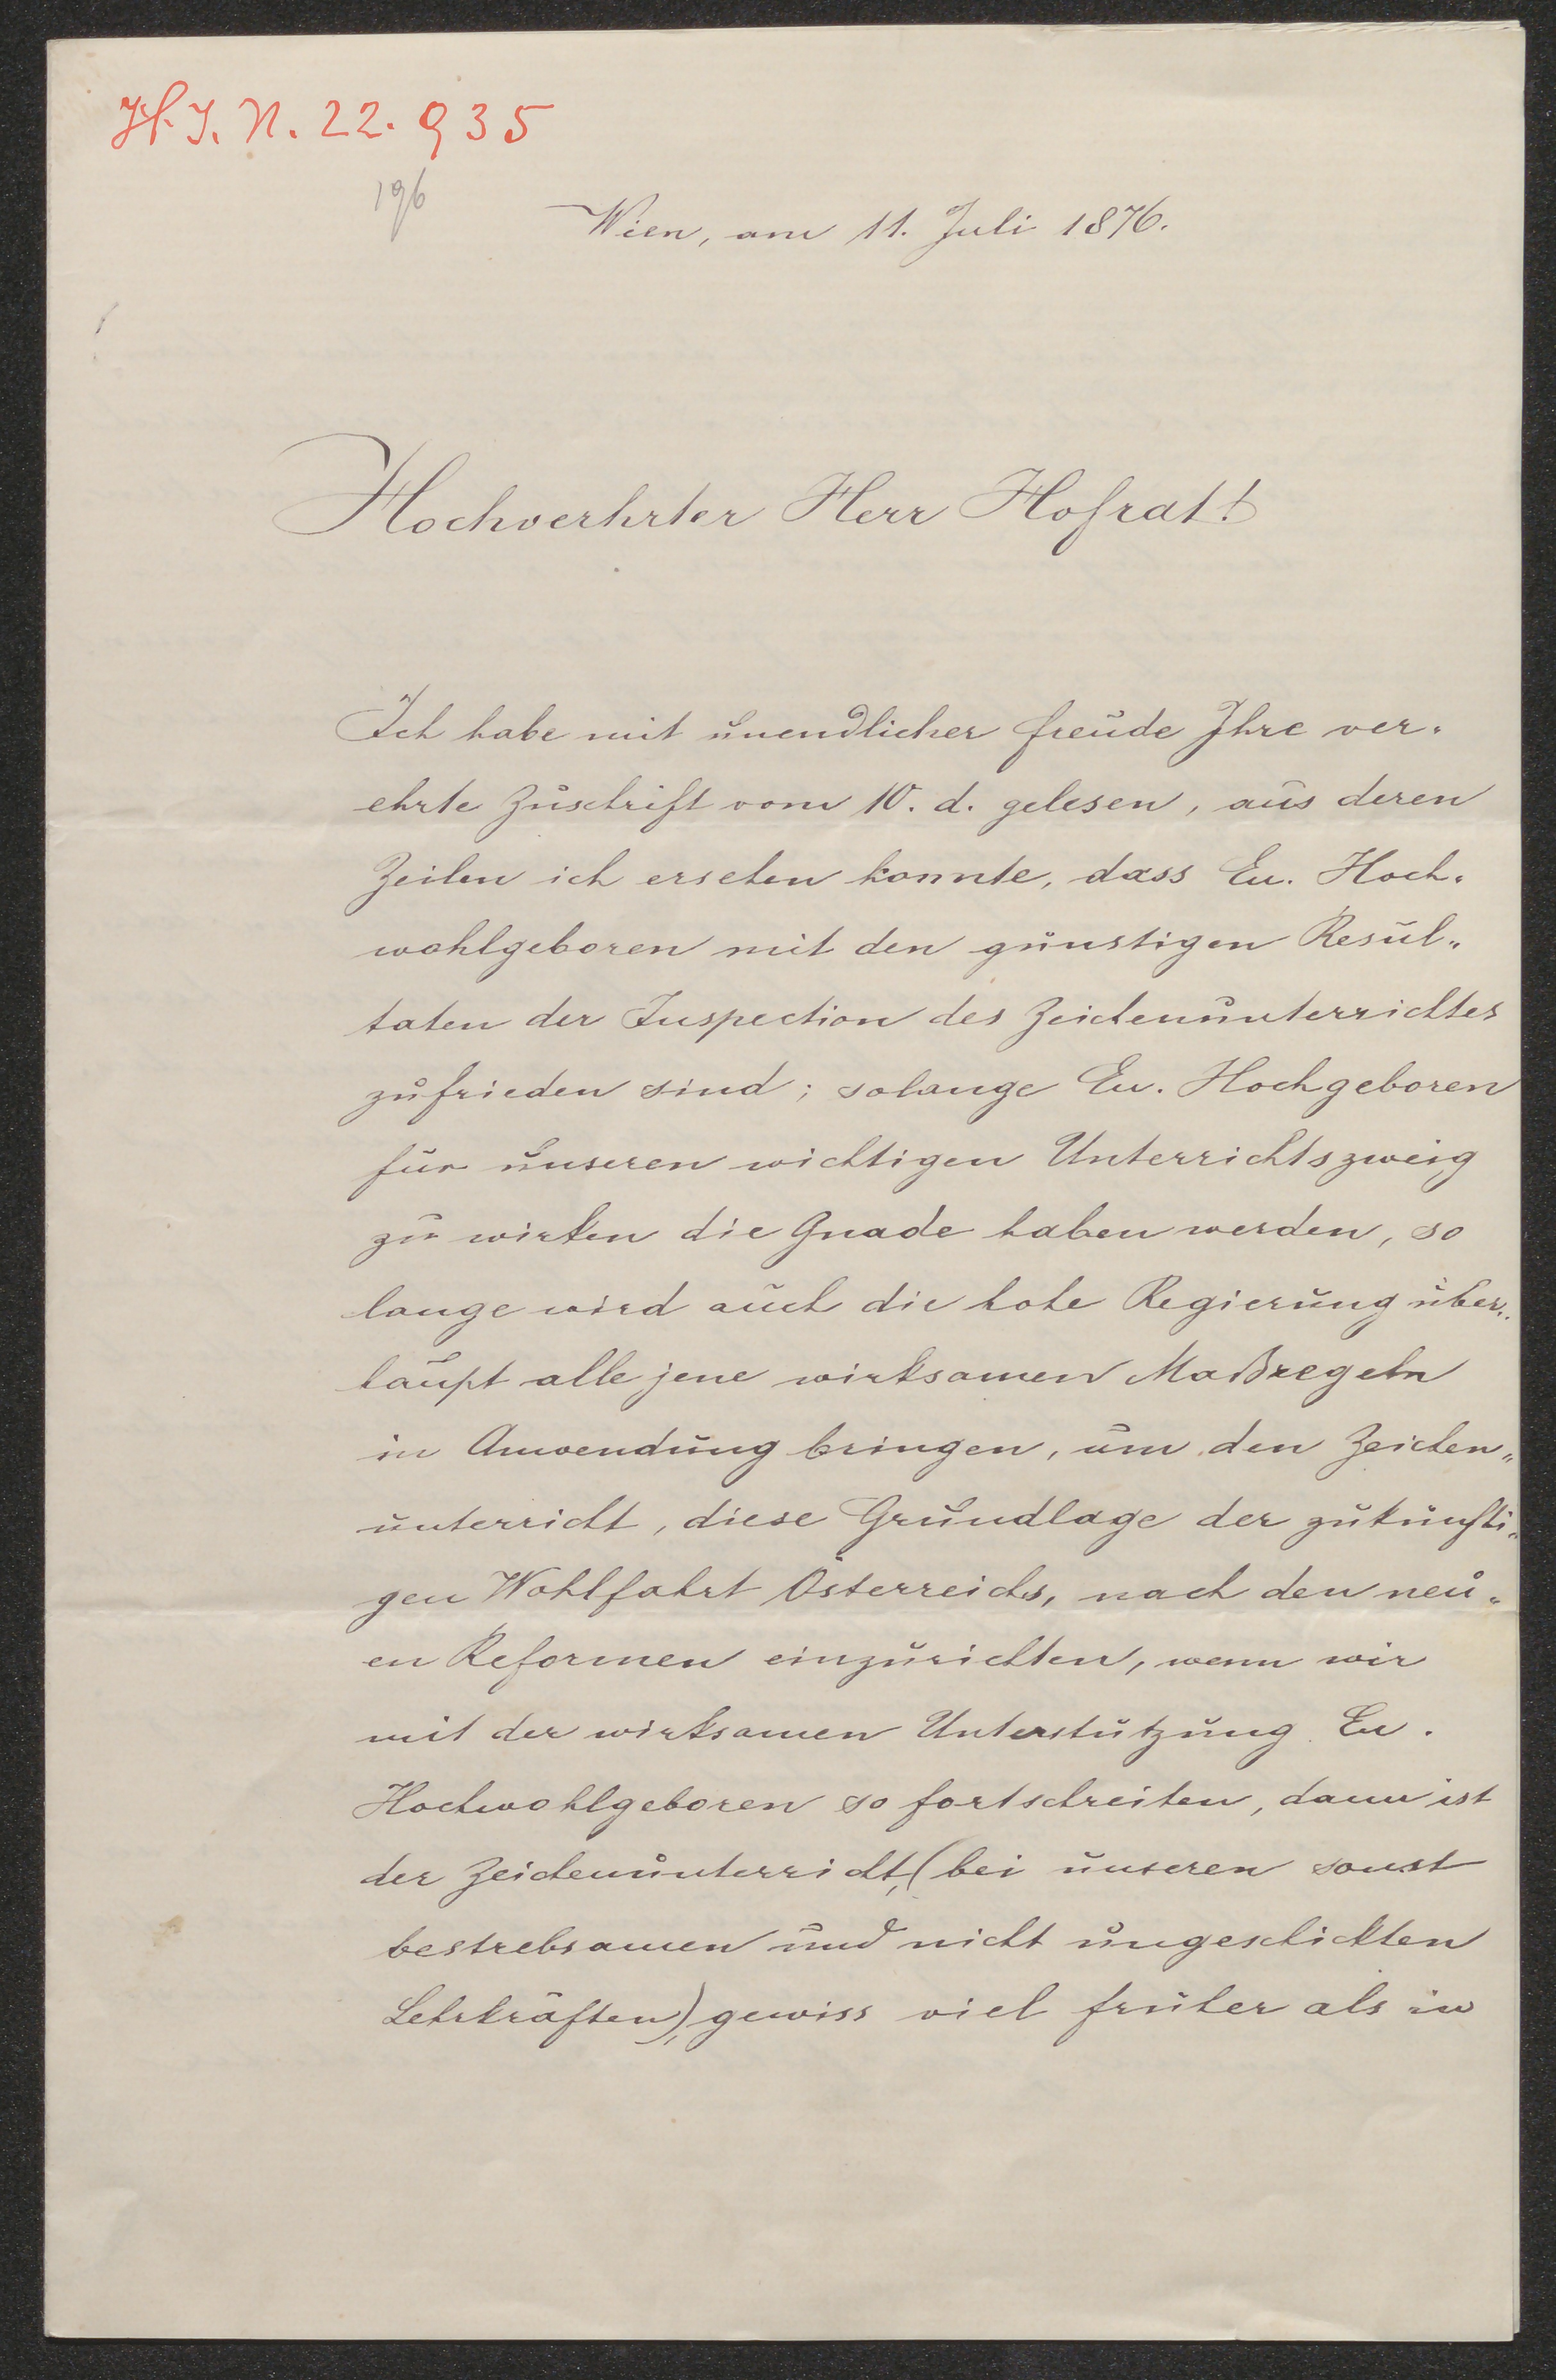 H. J. N. 22.935
196
Wien, am 11. Juli 1876.
Hochverhrter Herr Hofrat!
Ich habe mit unendlicher Freude Ihre ver-
ehrte Zuschrift vom 10. d. gelesen, aus deren
Zeilen ich ersehen konnte, dass Eu. Hoch-
wohlgeboren mit den günstigen Resul-
taten der Inspection des Zeichenunterrichtes
zufrieden sind; solange Eu. Hochgeboren
für unseren wichtigen Unterrichtszweig
zu wirken die Gnade haben werden, so
lange wird auch die hohe Regierung über-
haupt alle jene wirksamen Maßregeln
in Anwendung bringen, um den Zeichen-
unterricht, diese Grundlage der zukünfti-
gen Wohlfahrt Österreichs, nach den neu-
en Reformen einzurichten, wenn wir
mit der wirksamen Unterstützung Eu.
Hochwohlgeboren so fortschreiten, dann ist
der Zeichenunterricht, (bei unseren sonst
bestrebsamen und nicht ungeschickten
Lehrkräften), gewiss viel früher als in